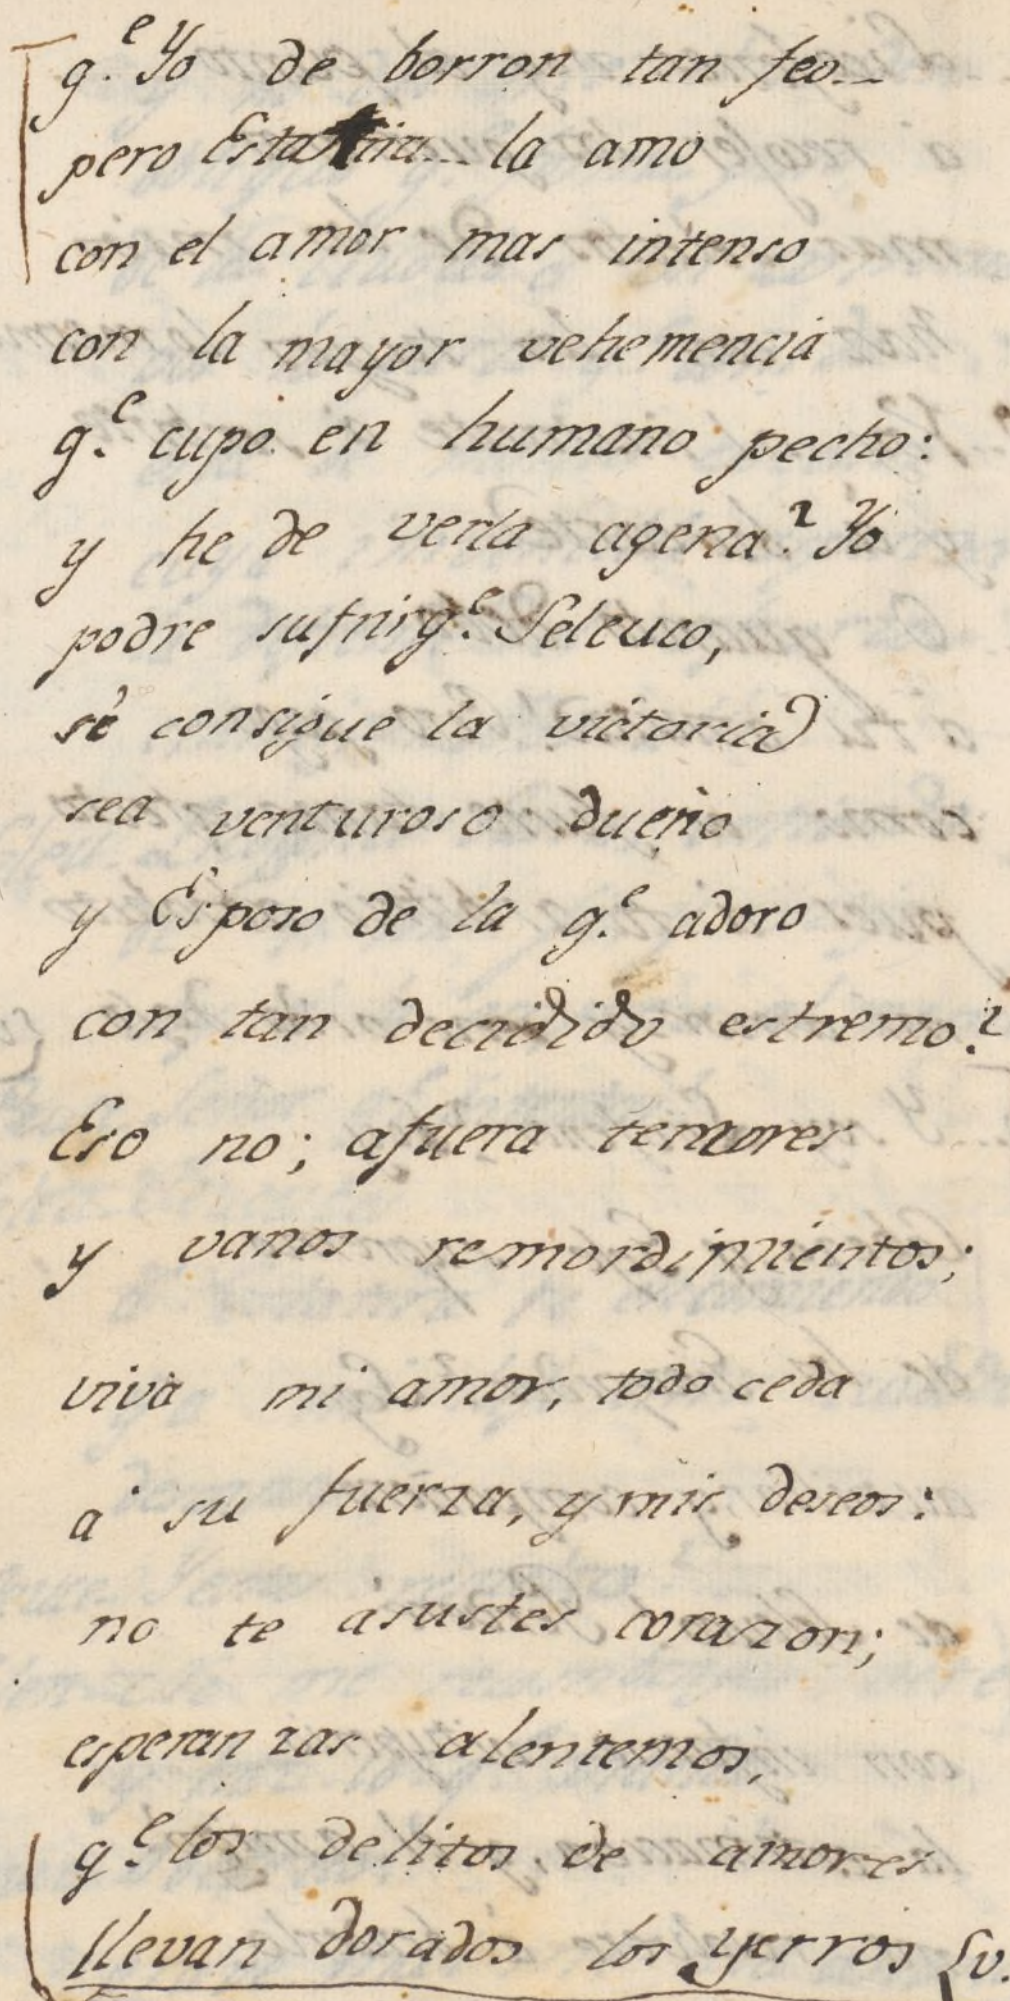 q.e Yo de borron tan feo...
pero ... la amo
con el amor mas intenso
con la mayor vehemencia
q.e cupo en humano pecho:
y he de verla agena? Yo
podre sufrir q.e Seleuco,
si consigue la victoria
sea venturoso dueño
y Esposo de la q.e adoro
con tan decidido estremo?
Eso no; afuera temores
y vanos remordimientos;
viva mi amor, todo ceda
a su fuerza, y mis deseos:
no te asustes corazon;
esperanzas alentemos,
q.e los delitos de amores
llevan dorados los yerros {v.